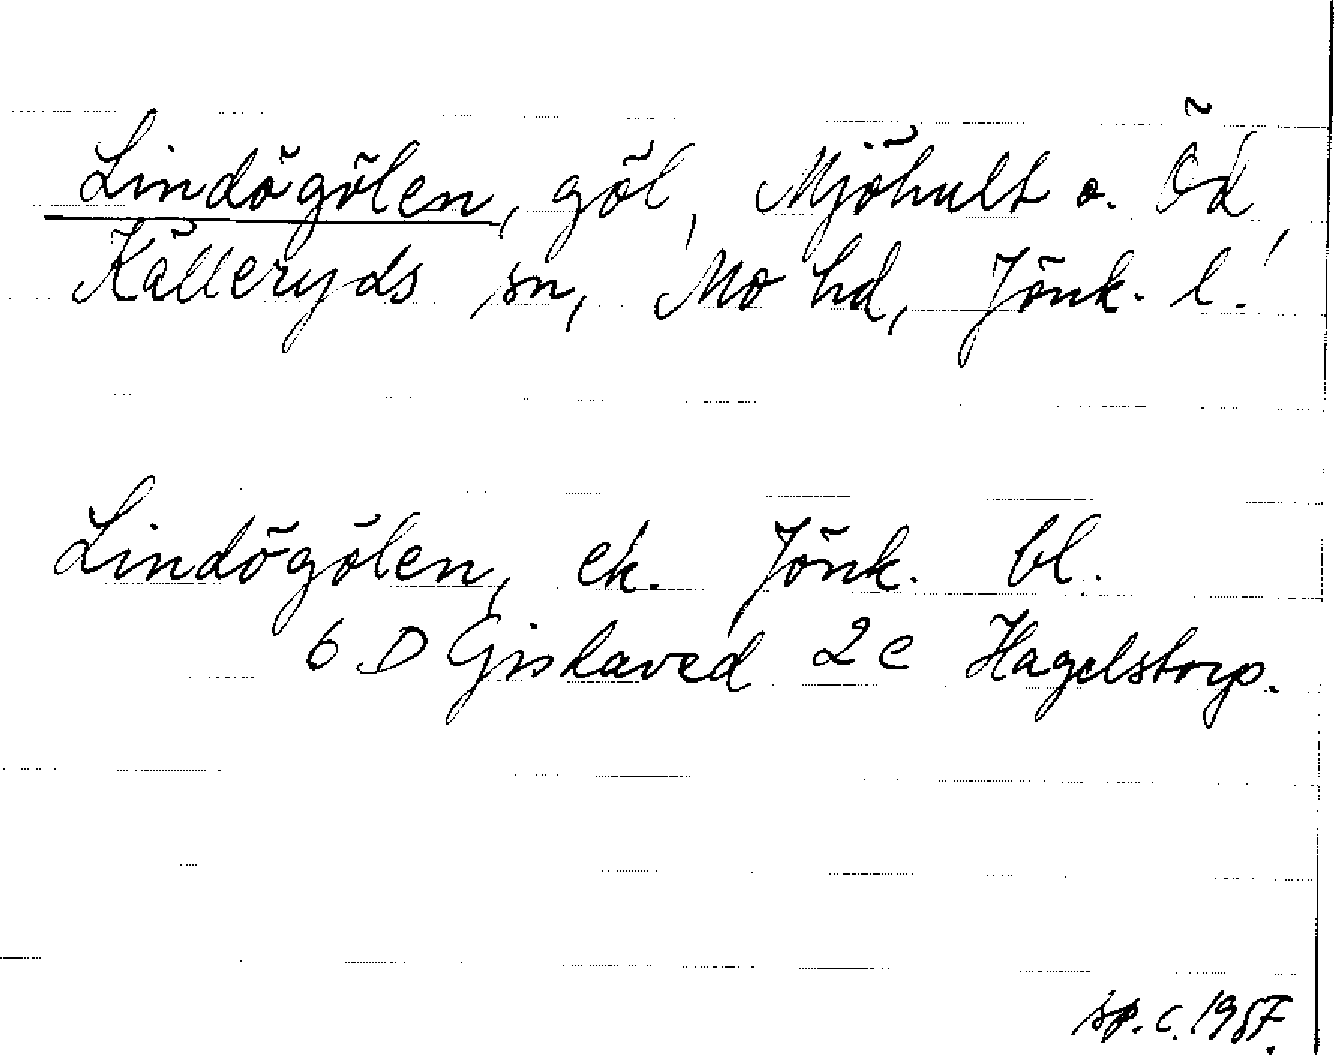 Lindögölen, göl, Mjöhult o. Öd,
Källeryds sn, Mo hd, Jönk. l.
Lindögölen, ek. Jönk. bl.
6 D Gislaved 2 e Hagelstorp.
sp. c. 1957.